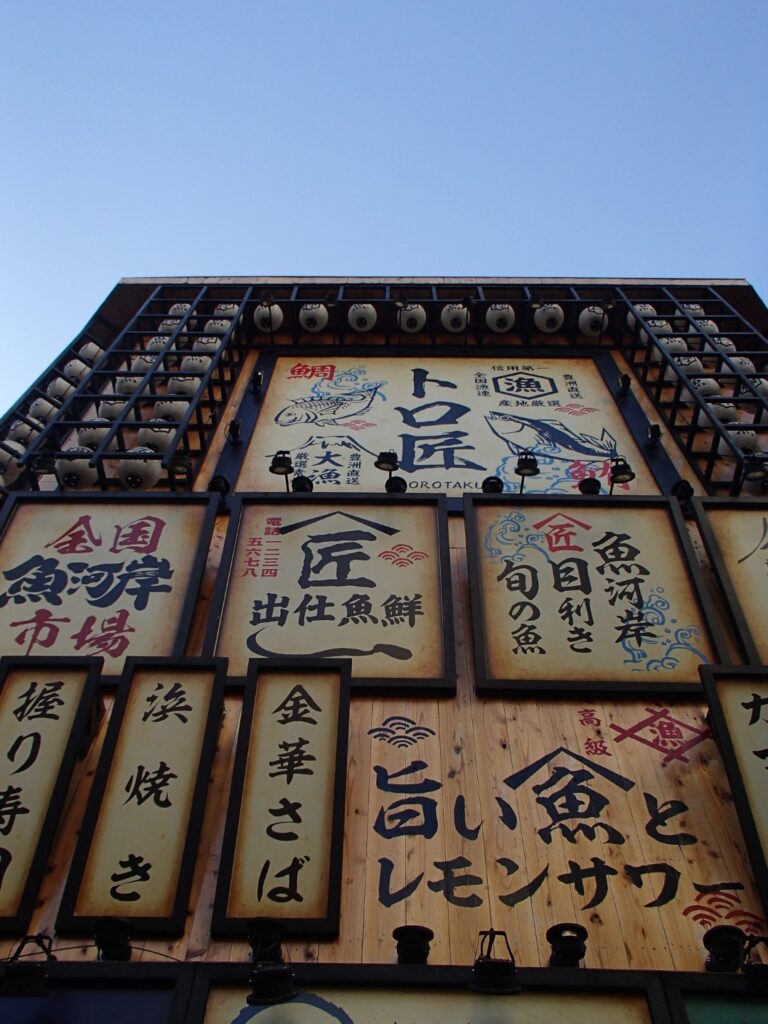 鯛
トロ匠
OROTAKU
信用第一
全国漁連
漁
豊洲直送
産地厳選
厳選素材
大漁
豊洲直送
全国
魚河岸
市場
電話一二三四
五六七八
匠
出仕魚鮮
匠
魚河岸
目利き
旬の魚
握り寿司
浜焼き
金華さば
高級
漁
旨い魚と
レモンサワー